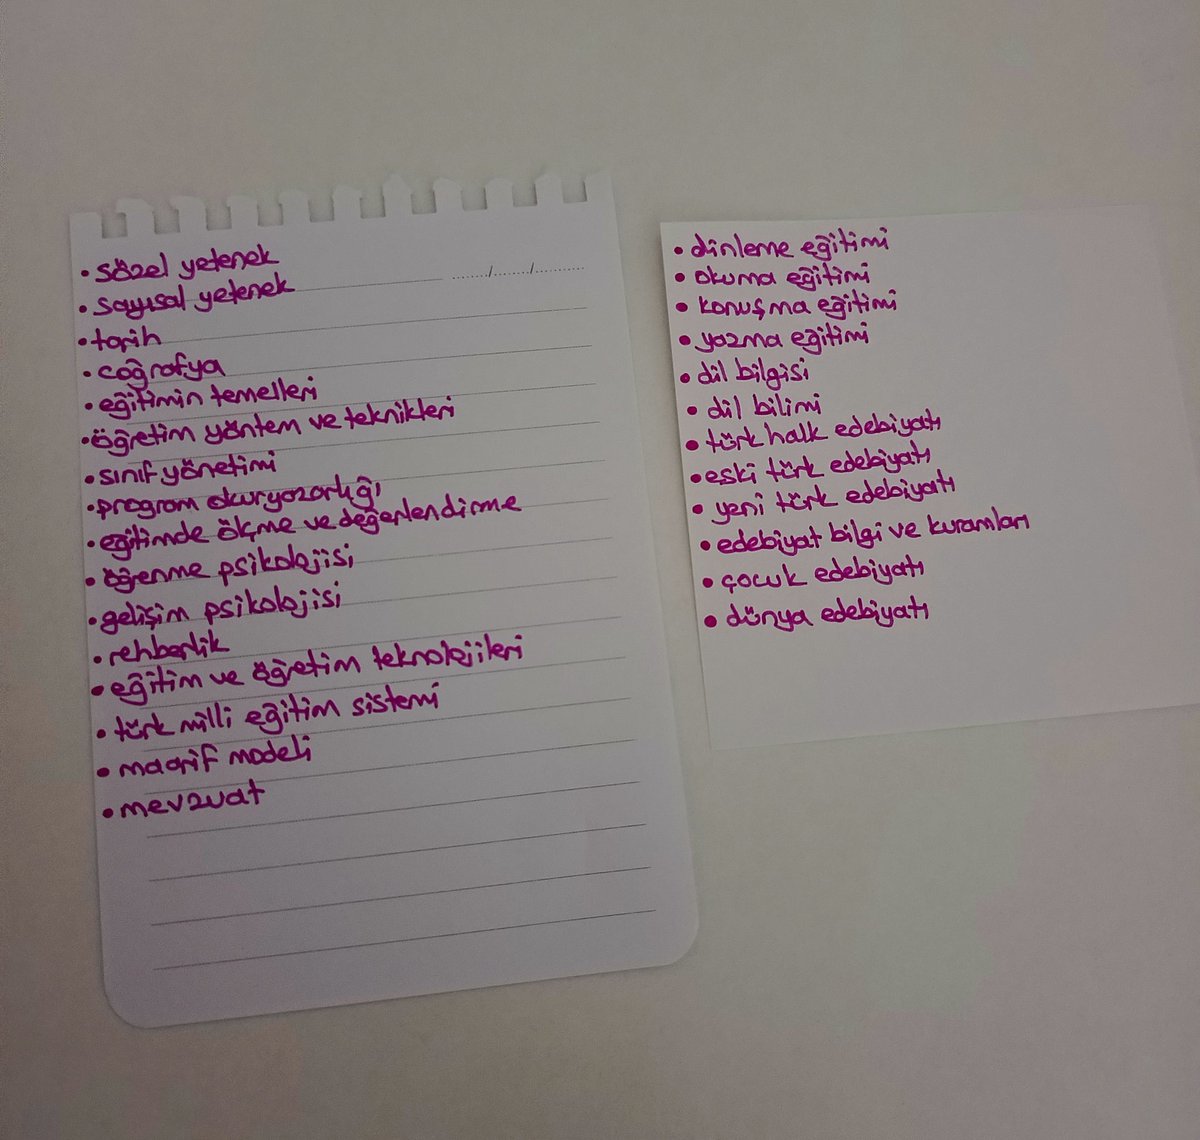 • sözel yetenek
• sayısal yetenek
......../......../............
• tarih
• coğrafya
• eğitimin temelleri
• öğretim yöntem ve teknikleri
• sınıf yönetimi
• program okuryazarlığı
• eğitimde ölçme ve değerlendirme
• öğrenme psikolojisi
• gelişim psikolojisi
• rehberlik
• eğitim ve öğretim teknolojileri
• türk milli eğitim sistemi
• maarif modeli
• mevzuat
• dinleme eğitimi
• okuma eğitimi
• konuşma eğitimi
• yazma eğitimi
• dil bilgisi
• dil bilimi
• türk halk edebiyatı
• eski türk edebiyatı
• yeni türk edebiyatı
• edebiyat bilgi ve kuramları
• çocuk edebiyatı
• dünya edebiyatı